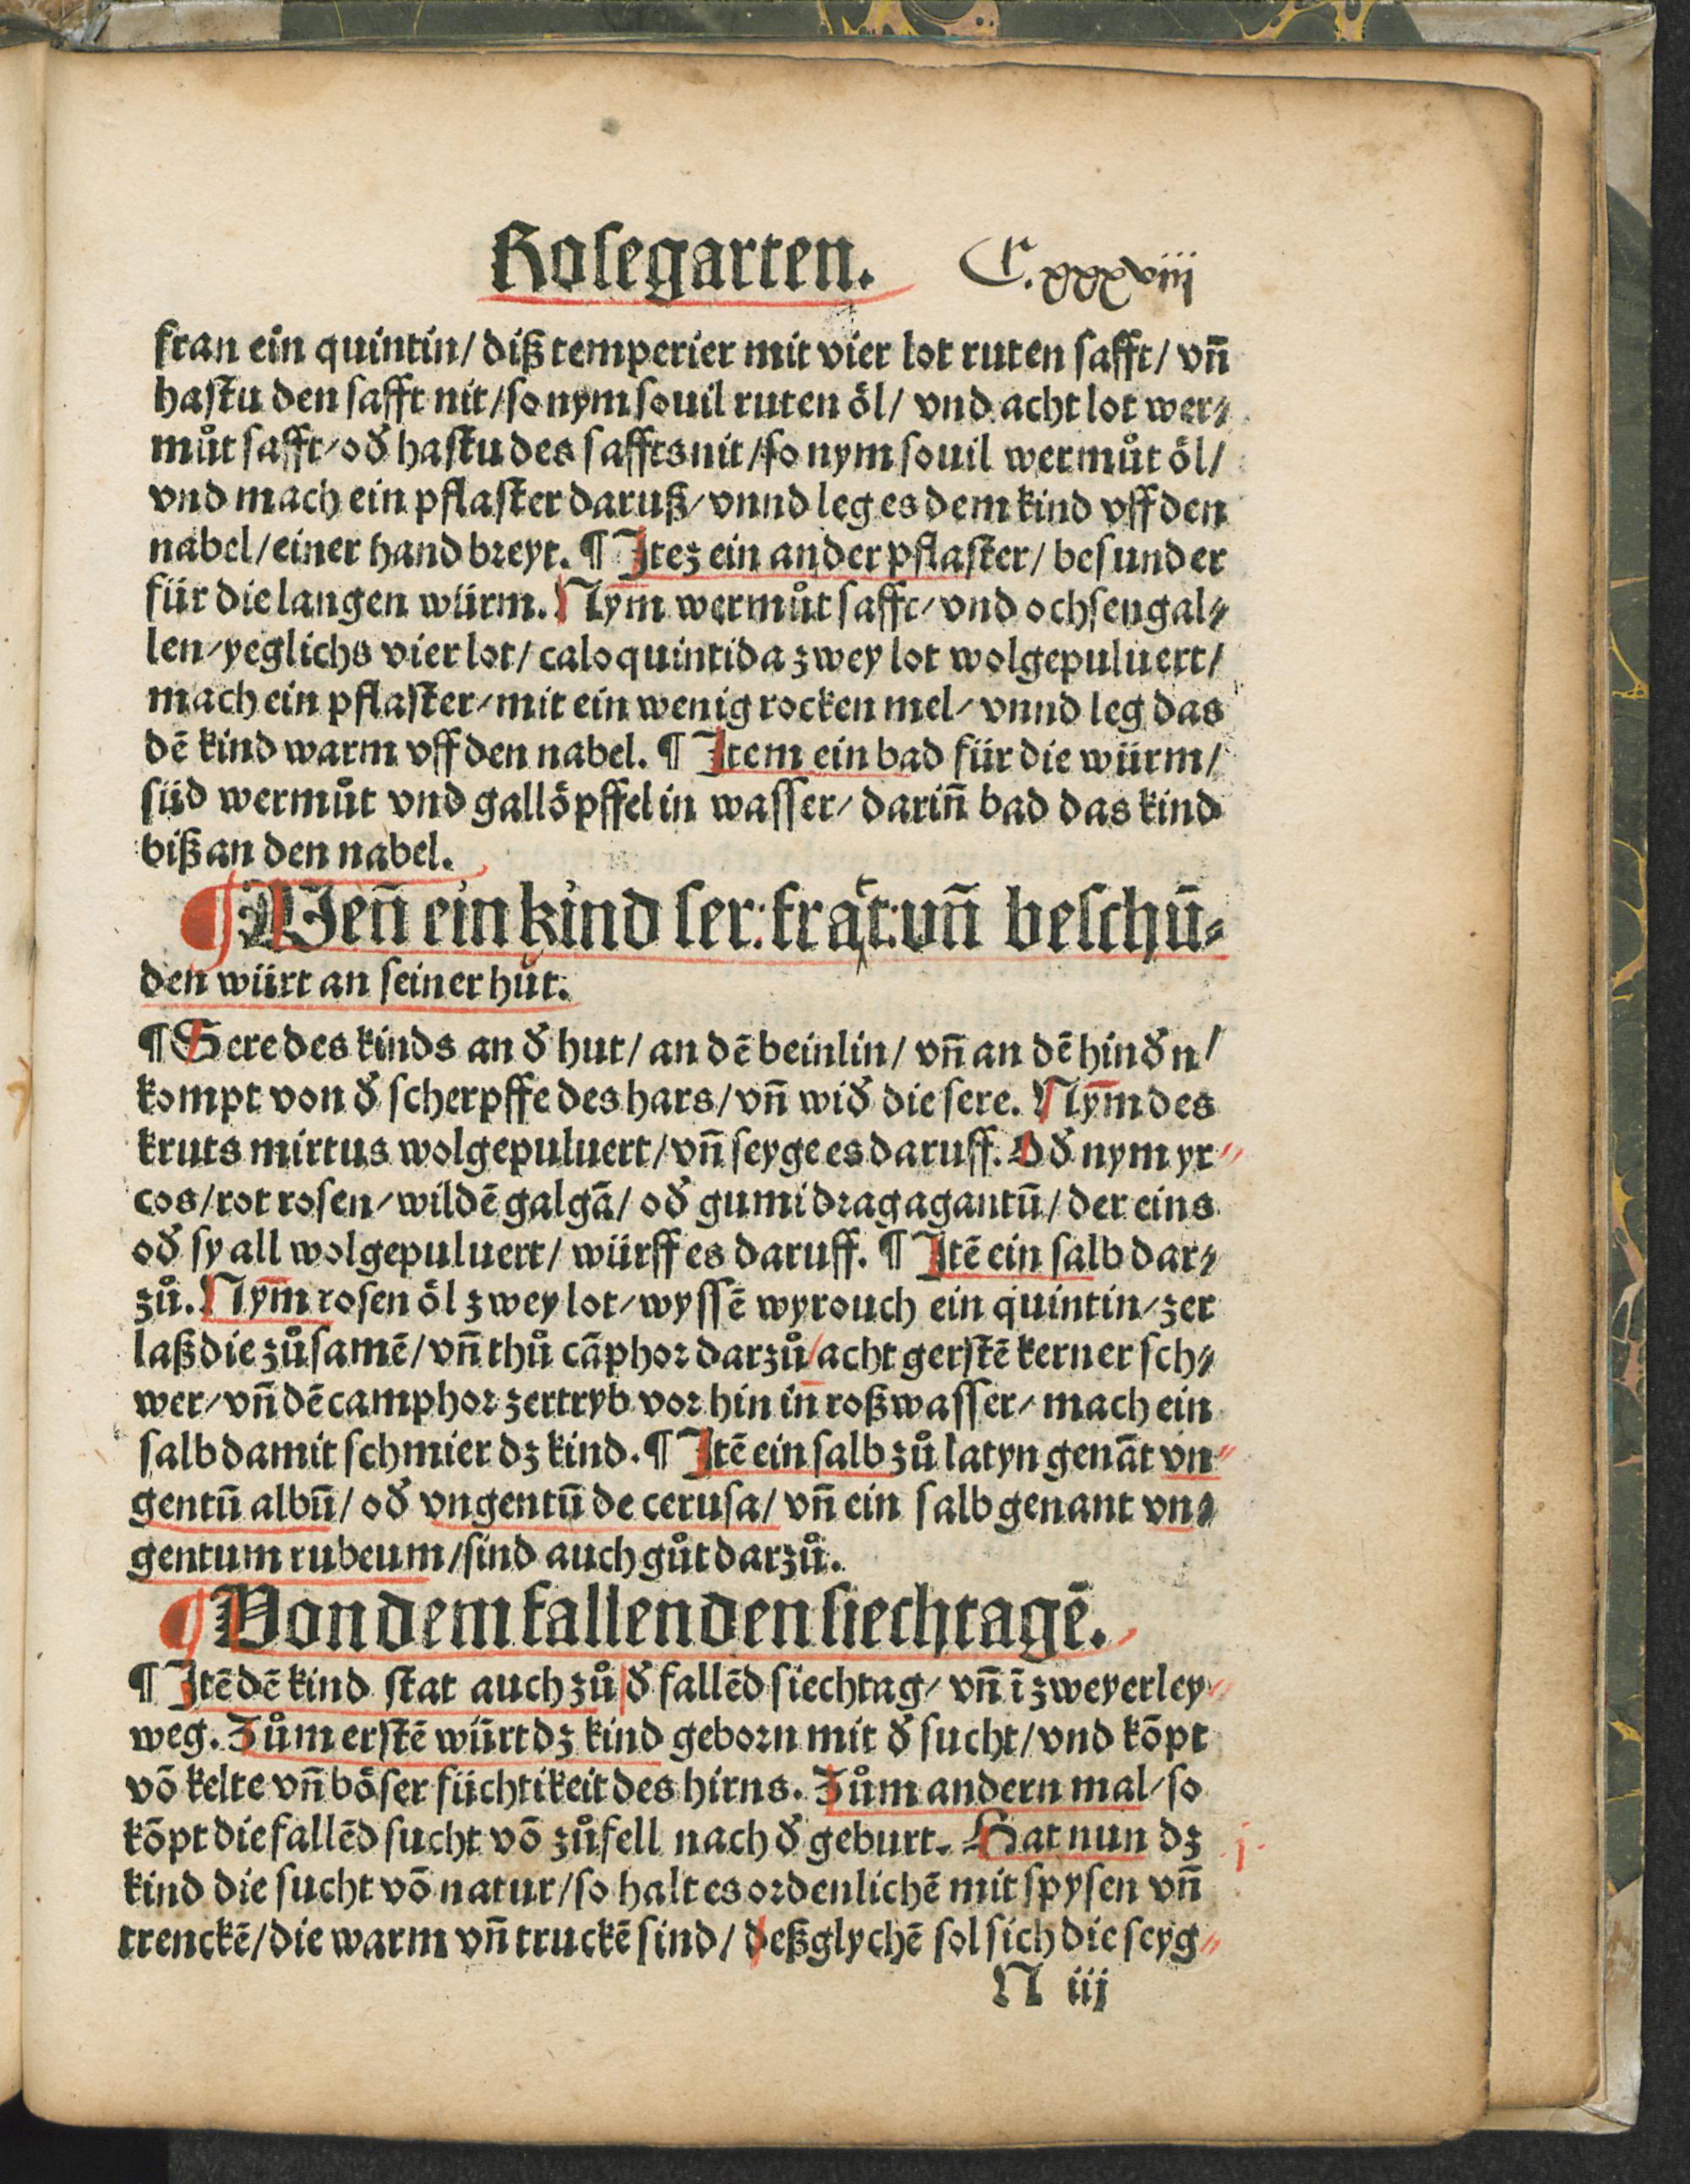 Rosegarten. C.xxxviij
fran ein quintin/ diß temperier mit vier lot ruten safft/ vñ
hastu den safft nit/ so nym souil ruten öl/ vnd acht lot wer⸗
můt safft/ oď hastu des saffts nit/ so nym souil wermůt öl/
vnd mach ein pflaster daruß/ vnnd leg es dem kind vff den
nabel/ einer hand breyt. ¶ Itez ein ander pflaster/ besunder
für die langen würm. Nym wermůt safft/ vnd ochsengal⸗
len/ yeglichs vier lot/ caloquintida zwey lot wolgepuluert/
mach ein pflaster/ mit ein wenig rocken mel/ vnnd leg das
dē kind warm vff den nabel. ¶ Item ein bad für die würm/
süd wermůt vnd gallöpffel in wasser/ dariñ bad das kind
biß an den nabel.
¶ Weñ ein kind ser: frat: vñ beschü⸗
den würt an seiner hut.
¶ Sere des kinds an ď hut/ an dē beinlin/ vñ an dē hinďn/
kompt von ď scherpffe des hars/ vñ wiď die sere. Nym̄ des
kruts mirtus wolgepuluert/ vñ seyge es daruff. Oď nym yr
cos/ rot rosen/ wildē galgā/ oď gumi dragagantū/ der eins
oď sy all wolgepuluert/ würff es daruff. ¶ Itē ein salb dar⸗
zů. Nym̄ rosen öl zwey lot/ wyssē wyrouch ein quintin/ zer
laß die zůsamē/ vñ thů cāphor darzů/ acht gerstē kerner sch⸗
wer/ vñ dē camphor zertryb vor hin in̄ roßwasser/ mach ein
salb damit schmier dz kind. ¶ Itē ein salb zů latyn genāt vn
gentū albū/ oď vngentū de cerusa/ vñ ein salb genant vn⸗
gentum rubeum/ sind auch gůt darzů.
¶ Von dem fallenden siechtagē.
¶ Itē dē kind stat auch zů ď fallēd siechtag/ vñ ī zweyerley
weg. Zům erstē würt dz kind geborn mit ď sucht/ vnd kōpt
vō kelte vñ böser füchtikeit des hirns. Zům andern mal/ so
kōpt die fallēd sucht vō zůfell nach ď geburt. Hat nun dz
kind die sucht vō natur/ so halt es ordenlichē mit spysen vñ
trenckē/ die warm vñ truckē sind/ deßglychē sol sich die seyg
N iij